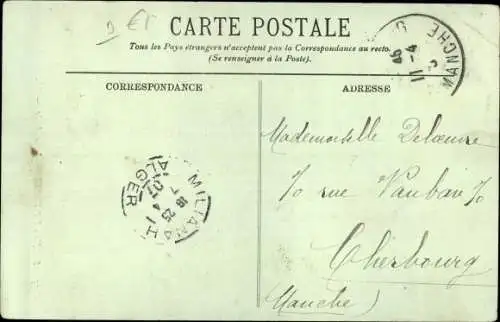 CARTE POSTALE
Tous les Pays étrangers n'acceptent pas la Correspondance au recto.
(Se renseigner à la Poste).
CORRESPONDANCE
ADRESSE
MANCHE
Mademoiselle
70 rue Vauban 70
Cherbourg
(Manche)
MILIANAH
ALGER
18 25